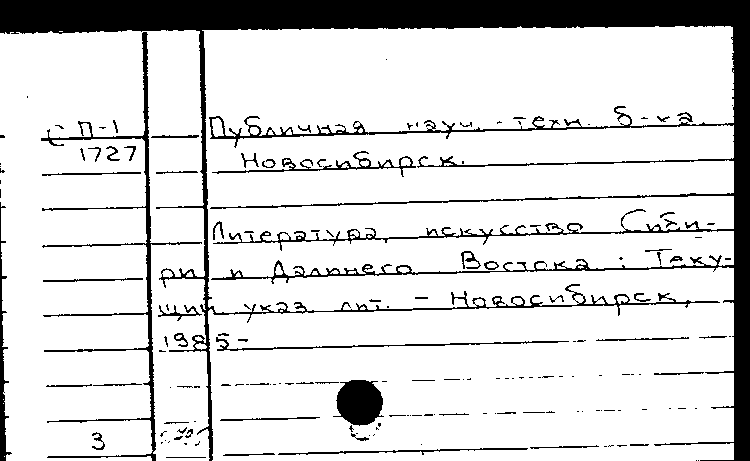 С П-1 Публичная науч.-техн. б-ка.
1727 Новосибирск.
Литература, искусство Сиби-
ри и Дальнего Востока : Теку-
щий указ. лит. - Новосибирск,
1985-
3